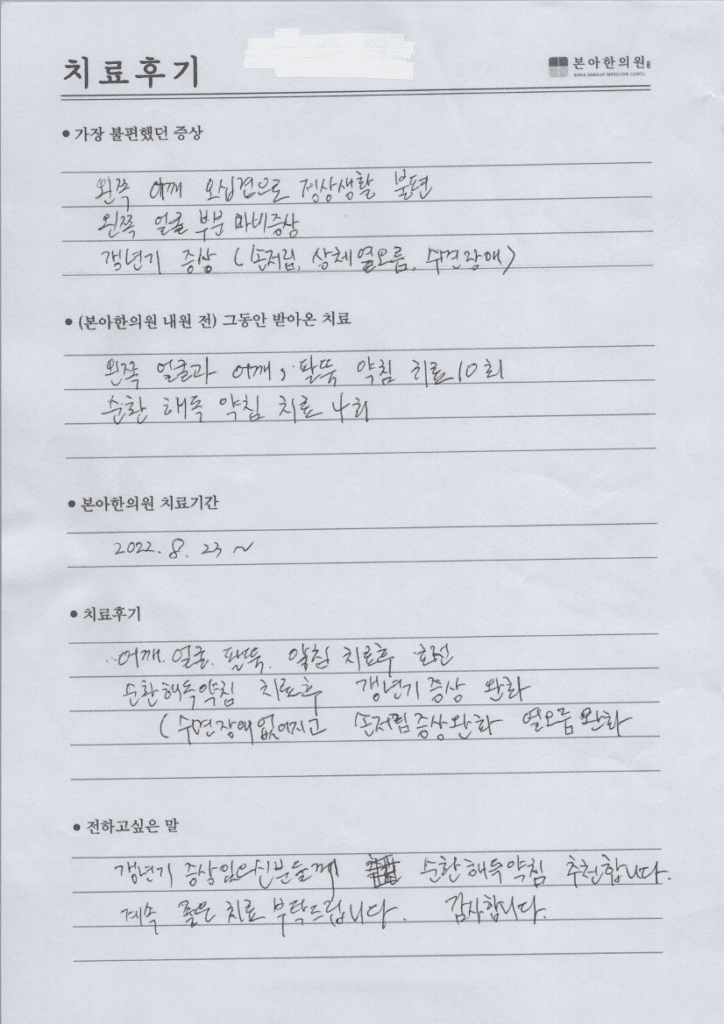 치료후기
본아한의원
• 가장 불편했던 증상
왼쪽 어깨 오십견으로 정상생활 불편
왼쪽 얼굴 부분 마비증상
갱년기 증상 (손저림, 상체열오름, 수면장애)
• (본아한의원 내원 전) 그동안 받아온 치료
왼쪽 얼굴과 어깨, 팔뚝 약침 치료 10회
순환 해독 약침 치료 4회
• 본아한의원 치료기간
2022. 8. 23 ~
• 치료후기
어깨. 얼굴. 팔뚝. 약침 치료후 호전
순환해독약침 치료후 갱년기증상 완화
(수면장애없어지고 손저림증상완화 열오름완화
• 전하고싶은 말
갱년기 증상있으신분들께 순환해독약침 추천합니다.
계속 좋은 치료 부탁드립니다. 감사합니다.